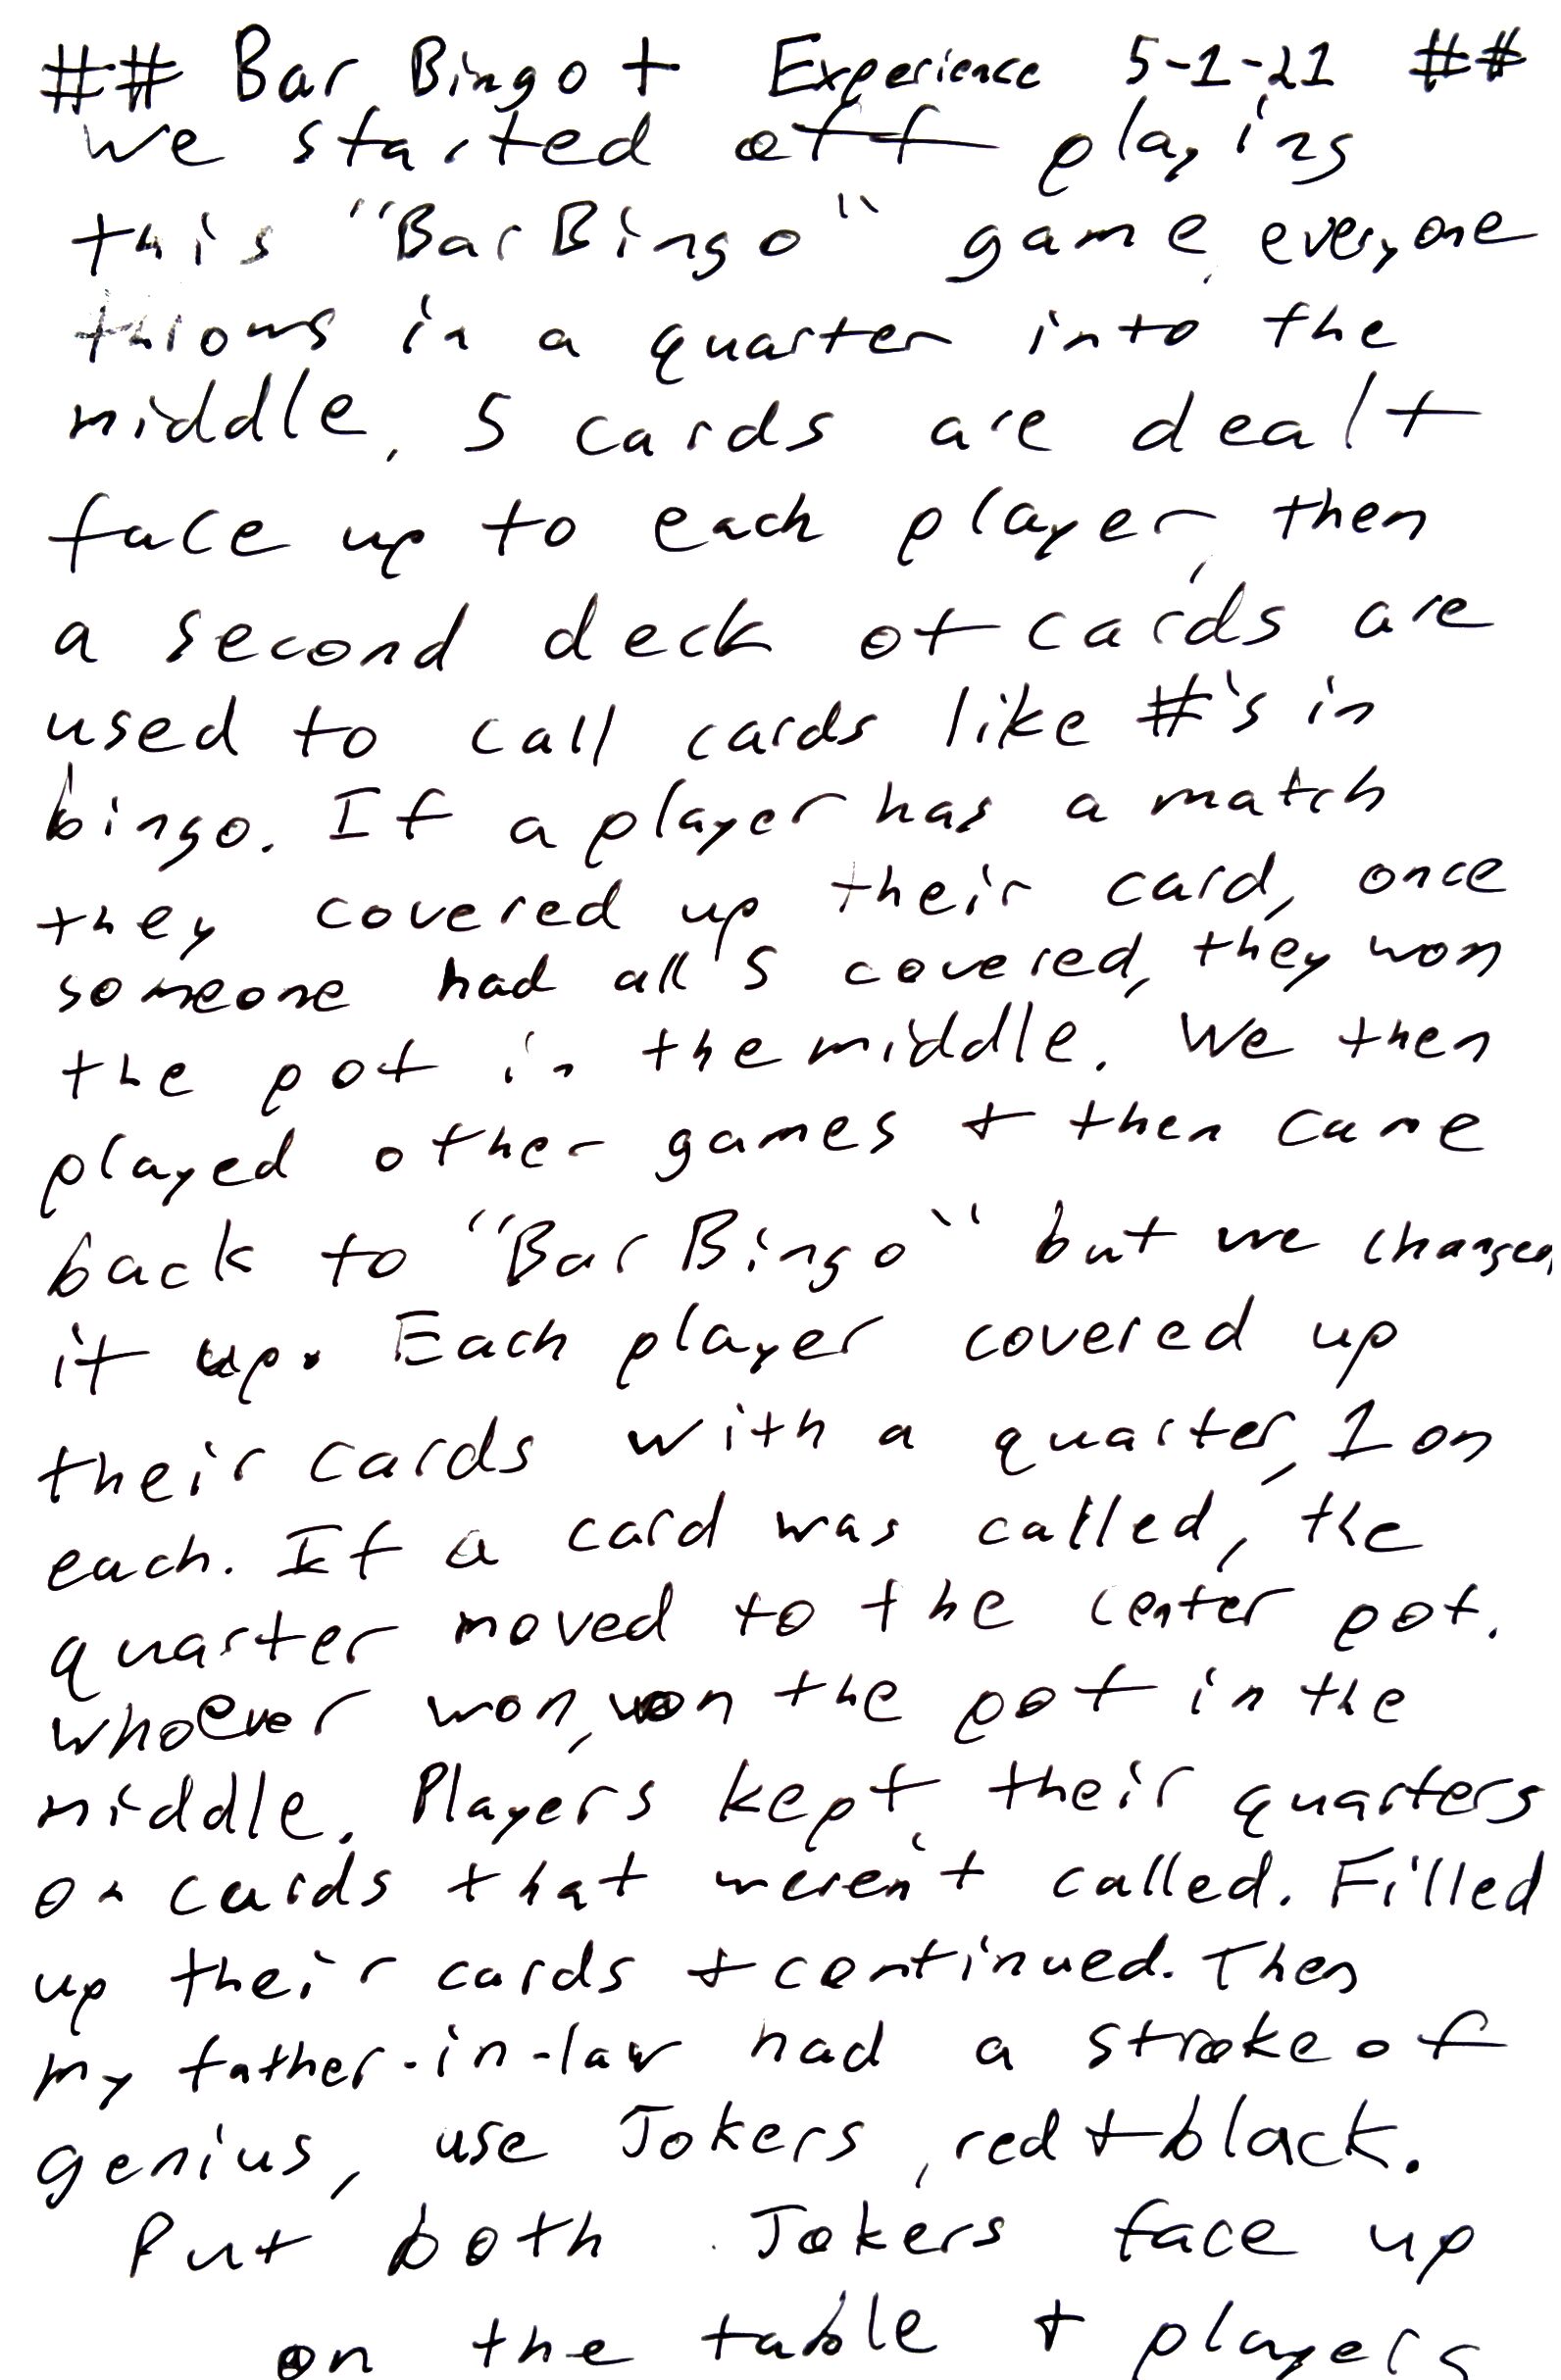 ## Bar Bingo + Experience 5-1-21 ##
We started off playing
this "Bar Bingo" game, everyone
throws in a quarter into the
middle, 5 cards are dealt
face up to each player, then
a second deck of cards are
used to call cards like #'s in
bingo. If a player has a match
they covered up their card, once
someone had all 5 covered, they won
the pot in the middle. We then
played other games + then came
back to "Bar Bingo" but we changed
it up. Each player covered up
their cards with a quarter, 1 on
each. If a card was called, the
quarter moved to the center pot.
whoever won, won the pot in the
middle. Players kept their quarters
on cards that weren't called. Filled
up their cards + continued. Then
my father-in-law had a stroke of
genius, use Jokers, red + black.
Put both Jokers face up
on the table + players